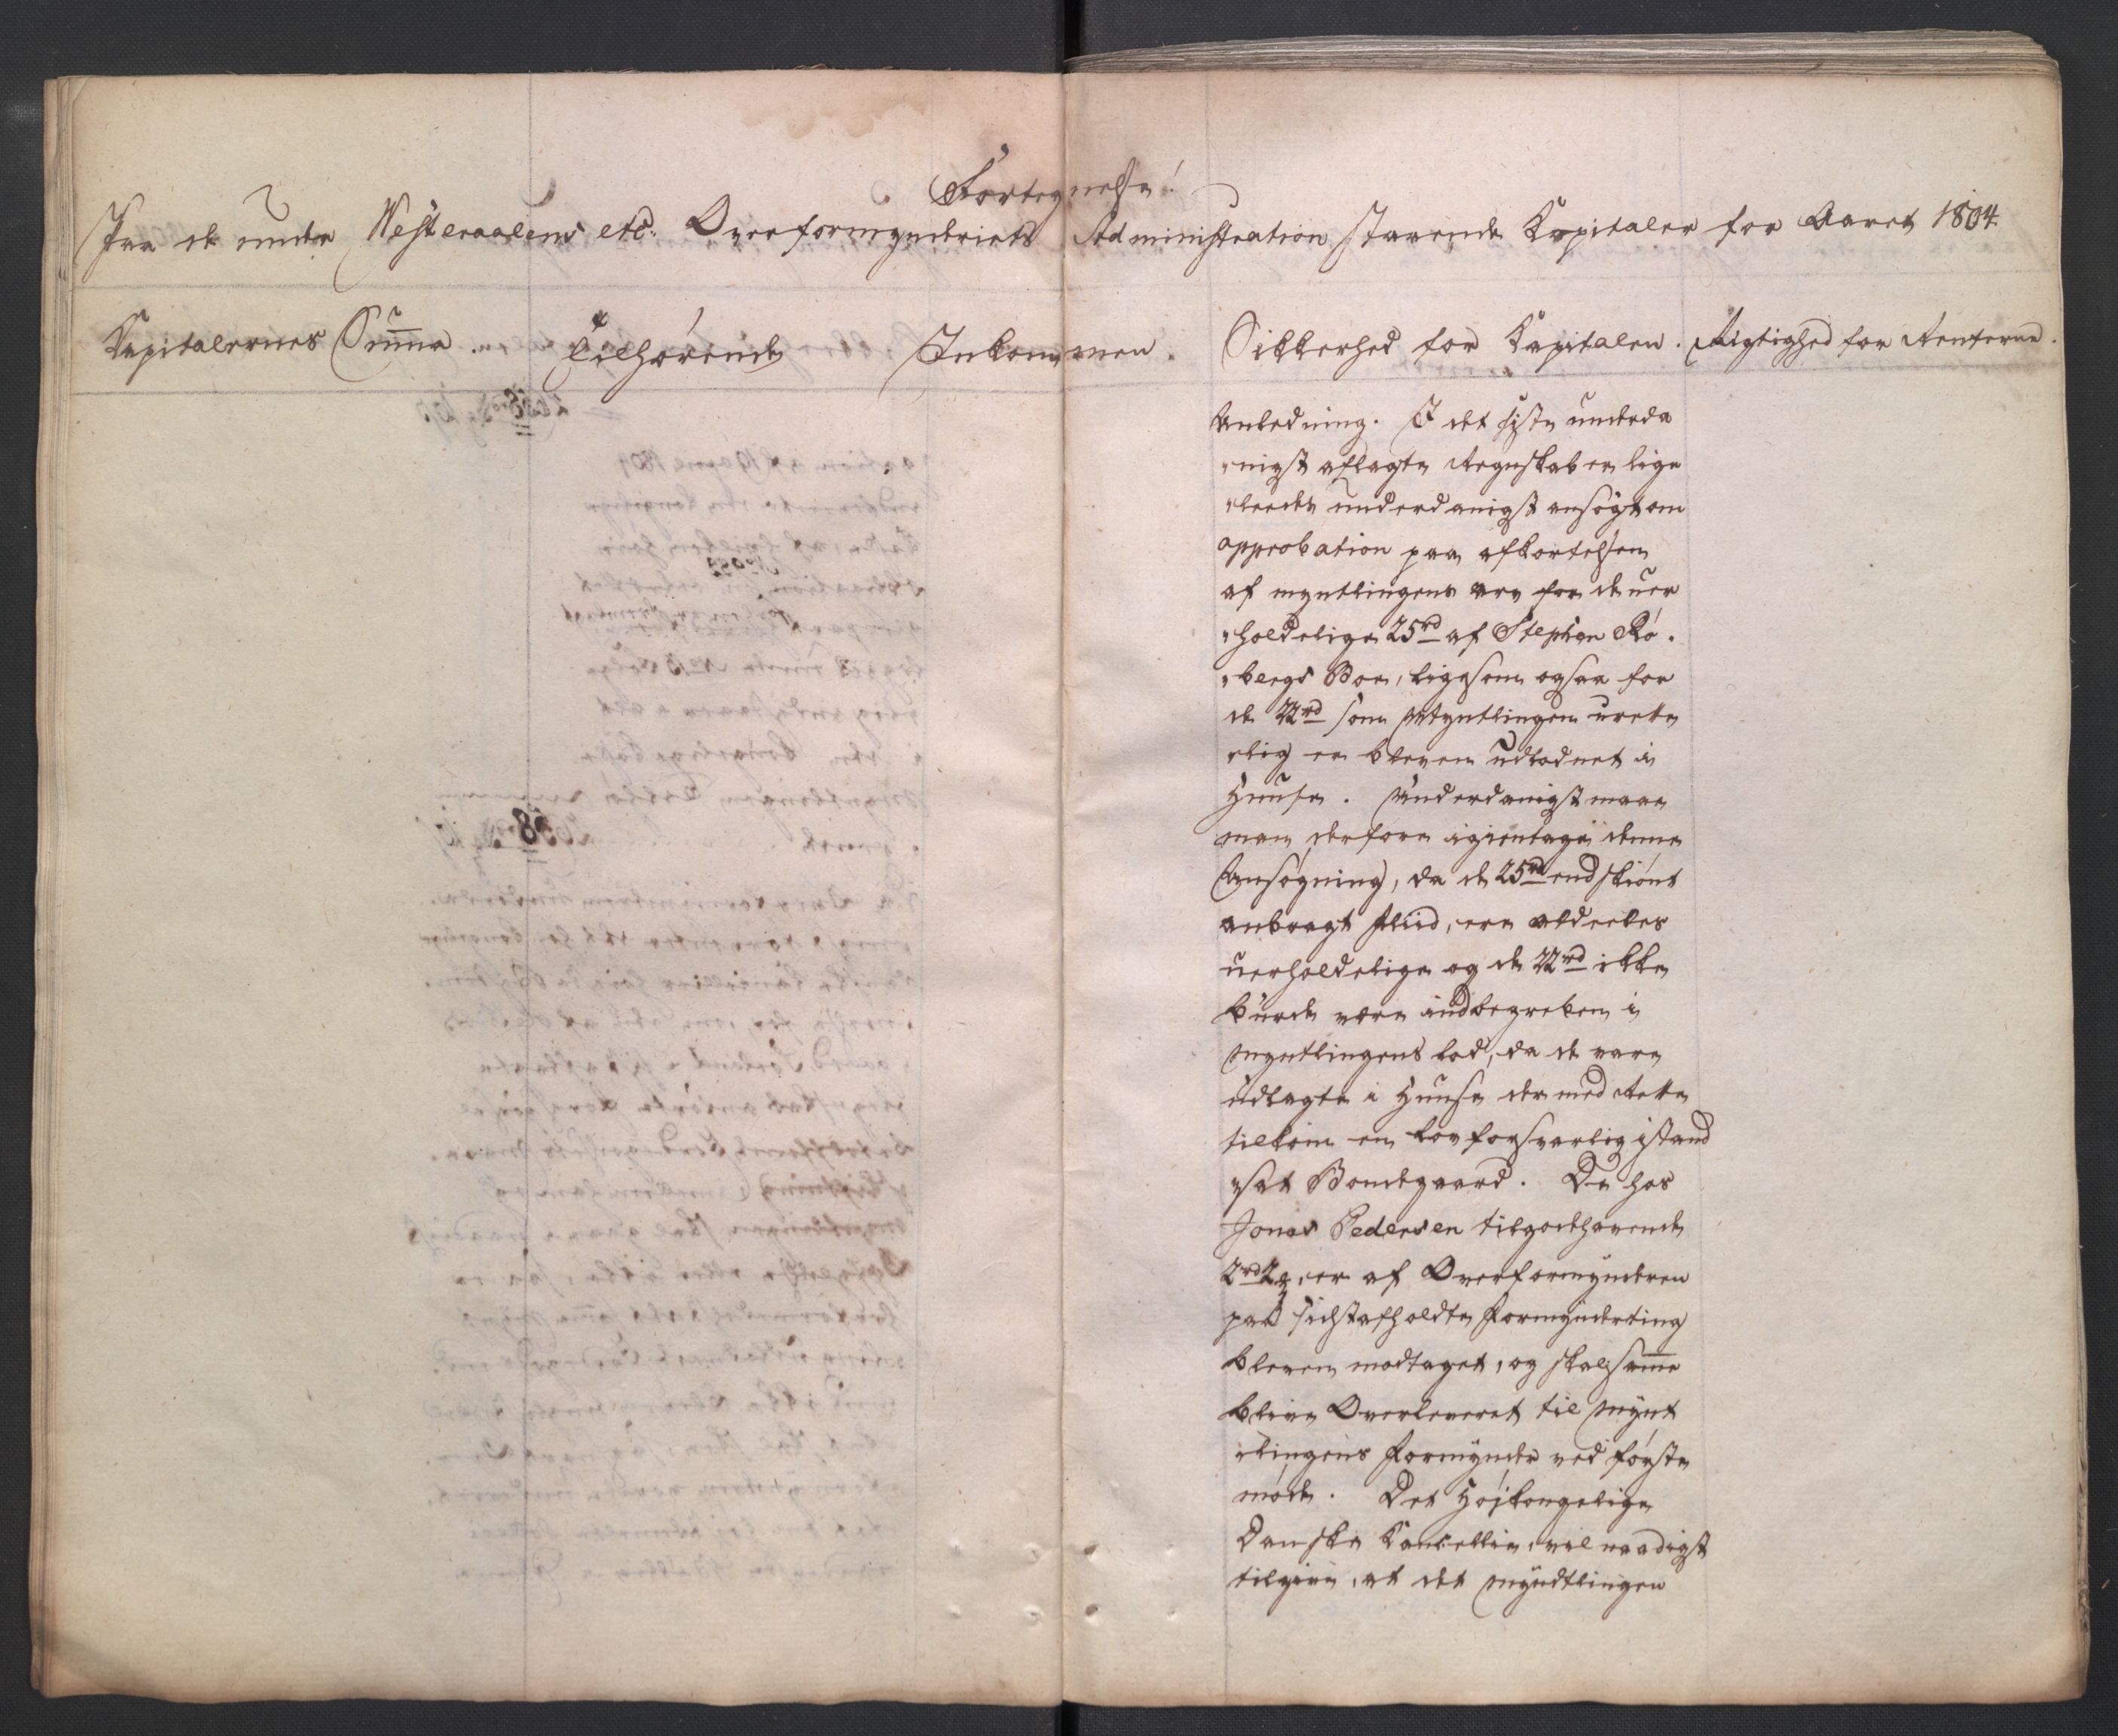 Fortegnelse!
Paa de under Westeraalens etc: Overformynderiets Administration staaende Kapitaler for Aaret 1804
Kapitalernes Suma. Tilhørende Inkommen. Sikkerhed for Kapitalen. Rigtighed for Renterne.
Anledning. I det siste underda
nigst aflagte Regnskab er lige
leedes underdanigst ansøgt om
approbation paa afkortelsen
af myntlingens arv for de uer
holdelige 25rd af Stephan Rø
bergs Boe, ligesom ogsaa for
de 22rd som Myntlingen urette
lig er bleven udlodnet i
Huuse. Underdanigst maae
man derfore igientage denne
Ansøgning, da de 25rd endskiønt
anbragt Fliid, ere aldeeles
uerholdelige og de 22rd ikke
burde være indbegreben i
Myntlingens lod, da de vare
udlagte i Huuse der med Rette
tilkom en lovforsvarlig istand
sat Bondegaard. De hos
Jonas Pedersen tilgodehavende
2rd 2 er af Overformynderen
paa sidstafholdte Formynderting
bleven modtaget, og skal same
blive Overleveret til Mynt
lingens Formynder ved første
møde. Det Høikongelige
Danske Kancellie, vil naadigst
tilgive, at det Myndtlingen